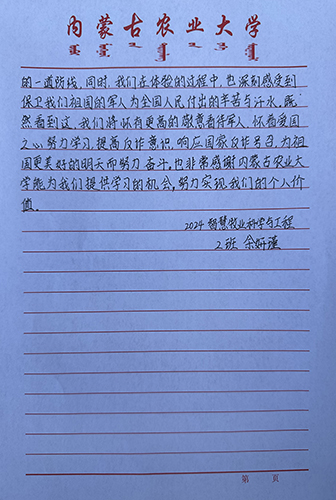 内蒙古农业大学
的一道防线，同时，我们在体验的过程中，也深刻感受到
保卫我们祖国的军人为全国人民付出的辛苦与汗水，既
然看到这，我们将怀有更高的敬意看待军人，怀着爱国
之心努力学习，提高反诈意识，响应国家反诈名召，为祖
国更美好的明天而努力奋斗。也非常感谢内蒙古农业大
学能为我们提供学习的机会，努力实现我们的个人价
值。
2024智慧牧业科学与工程
2班 余妍瑾
第 页